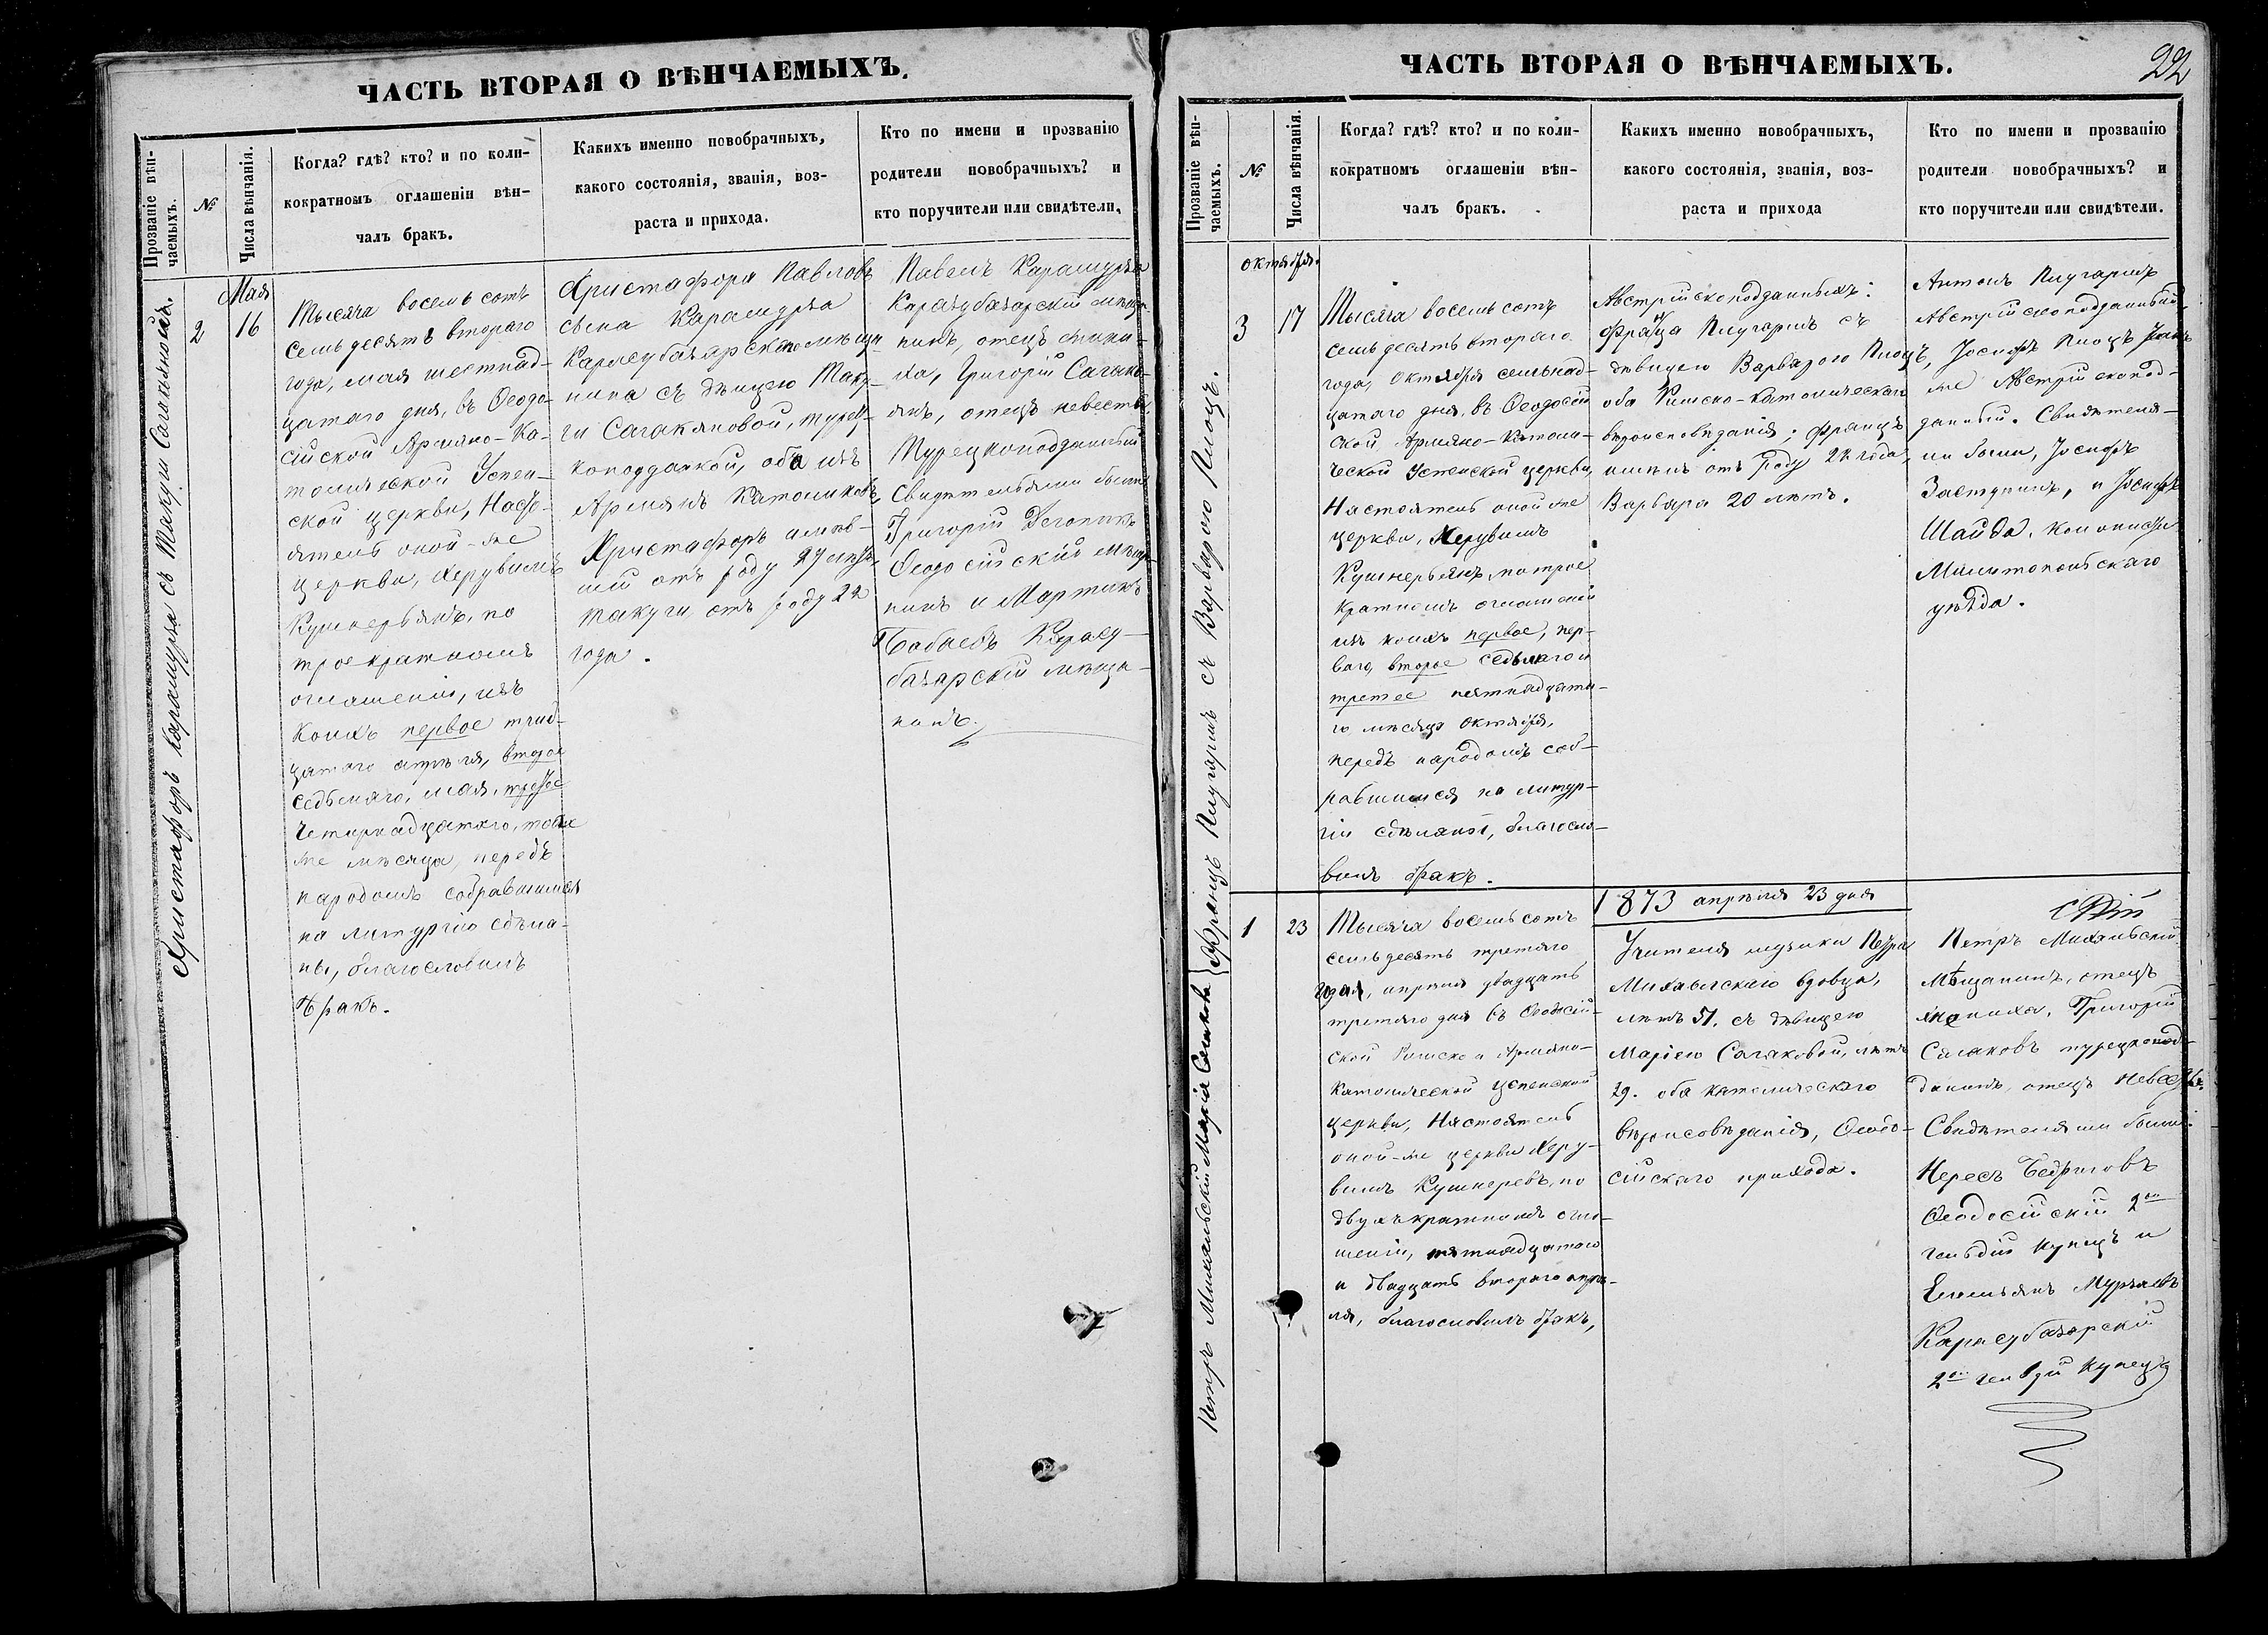 ЧАСТЬ ВТОРАЯ О ВѢНЧАЕМЫХЪ.
Прозваніе вѣн-
чаемыхъ.
№
Числа вѣнчанія.
Когда? гдѣ? кто? и по коли-
кократномъ оглашеніи вѣн-
чалъ бракъ.
Какихъ именно новобрачныхъ,
какого состоянія, званія, воз-
раста и прихода.
Кто по имени и прозванію
родители новобрачныхъ? и
кто поручители или свидѣтели.
Христафоръ Карамурза съ Такуги Сагакяномъ.
2
Мая
16
Тысяча восемь сотъ
семьдесятъ втораго
года, мая шестнад-
цатаго дня, въ Ѳеодо-
сійской Армяно-Ка-
толической Успен-
ской церкви, Насто-
ятель оной-же
церкви, Херувимъ
Кушнерьянъ, по
троекратномъ
оглашеніи, изъ
коихъ первое трид-
цатаго апрѣля, второе
седьмаго, мая, третее
четырнадцатаго, того
же мѣсяца, передъ
народомъ собравшимся
на литургію сдѣла-
ны, благословилъ
бракъ.
Христафора Павловъ
сына Карамурза
Карасубазарскаго мѣща-
нина съ дѣвицею Таку-
ги Сагакяновой, турец-
коподданкой, оба изъ
Армянъ Католиковъ,
Христафоръ имѣю-
щій отъ роду 27 лѣтъ,
Такуги отъ роду 22
года.
Павелъ Карамурза
Карасубазарскій мѣща-
нинъ, отецъ жени-
ха, Григорій Сагакь-
янъ, отецъ невесты,
Турецкоподданный
Свидѣтельями были
Григорій
Ѳеодосійскій мѣща-
нинъ и Мартинъ
Бабаевъ Карасу-
базарскій мѣща-
нинъ.
ЧАСТЬ ВТОРАЯ О ВѢНЧАЕМЫХЪ.
22
Прозваніе вѣн-
чаемыхъ.
№
Числа вѣнчанія.
Когда? гдѣ? кто? и по коли-
кократномъ оглашеніи вѣн-
чалъ бракъ.
Какихъ именно новобрачныхъ,
какого состоянія, званія, воз-
раста и прихода
Кто по имени и прозванію
родители новобрачныхъ? и
кто поручители или свидѣтели.
Францъ Плугаршъ съ Варварою Плоцъ.
октября.
3
17
Тысяча восемь сотъ
семьдесятъ втораго
года, Октября семьнад-
цатаго дня, въ Ѳеодосій
ской Армяно-Католи-
ческой Успенской церкви,
Настоятель оной же
церкви, Херувимъ
Кушнерьянъ, по трое
кратномъ оглашеніи
изъ коихъ первое, пер-
ваго, второе седьмаго и
третее пятнадцата-
го мѣсяца Октября,
передъ народомъ соб-
равшимся на литур-
гіи сдѣланы, благосло-
вилъ бракъ.
Австрійскоподданныхъ:
Франца Плугаршъ съ
дѣвицею Варварою Плоцъ,
оба Римско-католическаго
вѣроисповѣданія; Францъ
имѣлъ отъ роду 22 года,
Варвара 20 лѣтъ.
Антонъ Плугаршъ
Австрійскоподданный,
Іосифъ Плоцъ также
же Австрійскопод-
данный. Свидѣтеля-
ми были, Іосифъ
и Іосифъ
Шайда,
Мелитопольскаго
уѣзда.
Петръ Михальскій Марія Сагакова
1873 апрѣля 23 дня
1
23
Тысяча восемь сотъ
семьдесятъ третяго
года, апрѣля двадцать
третяго дня въ Ѳеодосій-
ской Римско и Армяно-
Католической Успенской
церкви, Настоятель
оной-же церкви Херу-
вимъ Кушнеревъ, по
двухъкратномъ огла-
шеніи, пятнадцатаго
и двадцать втораго апрѣ-
ля, благословилъ бракъ,
Учителя музыки Петра
Михальскаго вдовца,
лѣтъ 51. съ дѣвицею
Маріею Сагаковой, лѣтъ
29. оба католическаго
вѣроисовѣданія, Ѳеодо-
сійскаго прихода.
Петръ Михальскій
Мѣщанинъ, отецъ
жениха, Григорій
Сагаковъ турецкопод-
данинъ, отецъ невесты.
Свидѣтелями были:
Нересъ Бедриговъ
Ѳеодосійскій 2ой
гильдіи купецъ и
Емельянъ Мурзаевъ
Карасубазарскій
2ой гильдіи купецъ